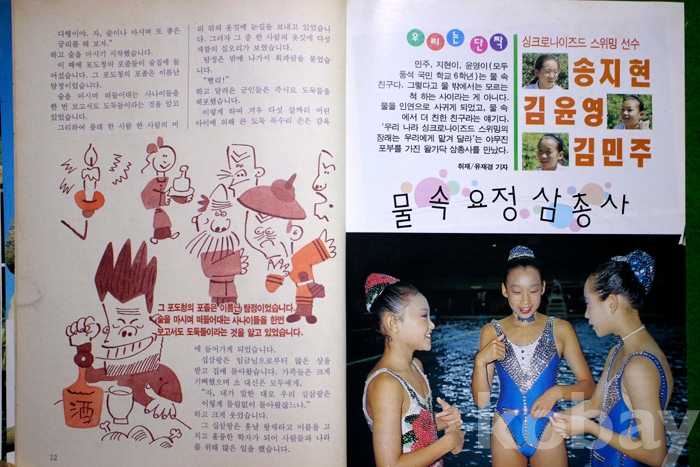 다행이야. 자, 술이나 마시며 또 좋은
궁리를 해 보자."
하고 술을 마시기 시작했습니다.
이 때에 포도청의 포졸들이 술집에 들
어섰습니다. 그 포도청의 포졸은 이름난
탐정이었습니다.
술을 마시며 떠들어대는 사나이들을
한 번 보고서도 도둑들이라는 것을 알고
있었습니다.
그리하여 몰래 한 사람 한 사람의 머
리 뒤의 옷깃에 눈길을 보내고 있었습니
다. 그러자 그 중 한 사람의 옷깃에 다섯
색깔의 실오리가 보였습니다.
탐정은 밖에 나가서 휘파람을 불었습
니다.
"빨리!"
하고 달려온 군인들은 즉시로 도둑들을
체포했습니다.
이렇게 하여 겨우 다섯 살짜리 어린
아이에 의해 큰 도둑 독수리 손은 감옥
그 포도청의 포졸은 이름난 탐정이었습니다.
술을 마시며 떠들어대는 사나이들을 한번
보고서도 도둑들이라는 것을 알고 있었습니다.
酒
에 들어가게 되었습니다.
십삼랑은 임금님으로부터 많은 상을
받고 집에 돌아왔습니다. 가족들은 크게
기뻐했으며 소 대신은 모두에게,
"자, 내가 말한 대로 우리 십삼랑은
이렇게 틀림없이 돌아왔잖느냐."
하고 크게 웃었습니다.
그 십삼랑은 훗날 왕채라고 이름을 고
치고 훌륭한 학자가 되어 사람들과 나라
를 위해 많은 일을 했습니다.
12
우리는 단짝
민주, 지현이, 윤영이(모두
풍석 국민 학교 6학년)는 물 속
친구다. 그렇다고 물 밖에서는 모르는
척 하는 사이라는 게 아니다.
물을 인연으로 사귀게 되었고, 물 속
에서 더 친한 친구라는 얘기다.
'우리 나라 싱크로나이즈드 스위밍의
장래는 우리에게 맡겨 달라'는 야무진
포부를 가진 왈가닥 삼총사를 만났다.
취재/유재경 기자
싱크로나이즈드 스위밍 선수
송지현
김윤영
김민주
물 속 요정 삼총사
kobay